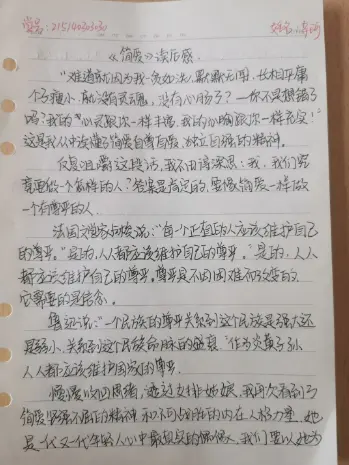 学号:2151903030
姓名:肖
《简爱》读后感.
"难道就因为我一贫如洗、默默无闻、长相平庸
个子瘦小,就没有灵魂,没有心肠了?——你不是想错了
吗?我的"心灵跟你一样丰满,我的心胸跟你一样充实!"
这是我从中读懂了简爱自尊自爱、独立自强的精神。
反复咀嚼这段话,我不由得深思:我,我们究
竟要做一个怎样的人?答案是肯定的,要像简爱一样做
一个有尊严的人.
法国文学家说:"每一个正直的人应该维护自己
的尊严。"是的,人人都应该维护自己的尊严。"是的,人人
都应该维护自己的尊严。尊严是不因困难而改变的,
它需要的是
鲁迅说:"一个民族的尊严关系到这个民族是强大还
是弱小,关系到这个民族命脉的盛衰."作为炎黄子孙
人人都应该维护国家的尊严.
慢慢收回思绪,透过女排姑娘,我再次看到了
简爱坚强不屈的精神和不可战胜的内在人格力量,她
是一代又一代年轻人心中最的,我们要以她为